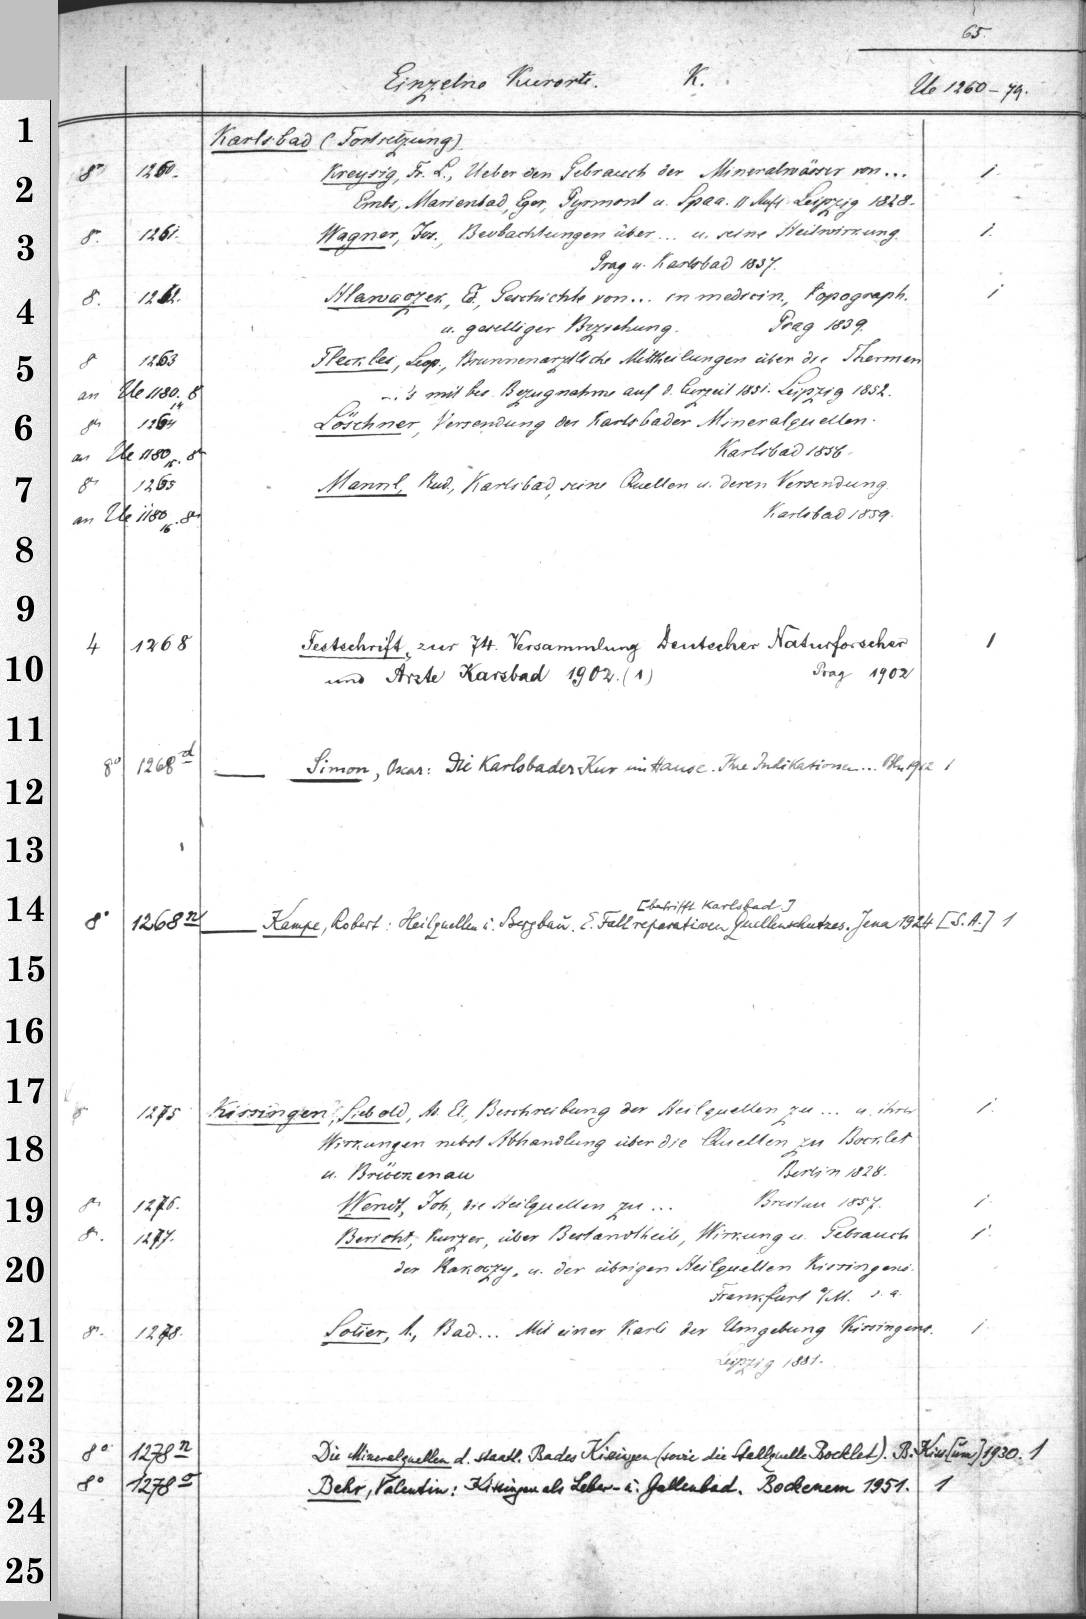 65.
Einzelne Kurorte. K. Ue 1260-79.
1
Karlsbad (Fortsetzung)
2
8° 1260. Kreysig, Fr. L., Ueber den Gebrauch der Mineralwässer von ... 1.
Embs, Marienbad, Eger, Pyrmont u. Spaa. II Aufl. Leipzig 1828.
3
8. 1261. Wagner, Jos., Beobachtungen über ... u. seine Heilwirkung. 1.
Prag u. Karlsbad 1837.
4
8. 1262. Hlawaczek, Ed., Geschichte von ... in medicin., topograph. 1
u. geselliger Beziehung. Prag 1839.
5
8 1263 Fleckles, Leop., Brunnenärztliche Mittheilungen über die Thermen
an Ue 1180.14 8 ...'s mit bes. Bezugnahme auf d. Curzeit 1851. Leipzig 1852.
6
8° 1264 Löschner, Versendung der Karlsbader Mineralquellen.
an Ue 1180 15. 8° Karlsbad 1856.
7
8° 1265 Mannl, Rud., Karlsbad, seine Quellen u. deren Versendung
an Ue 1180 16. 8° Karlsbad 1859.
8
9
4 1268 Festschrift, zur 74. Versammlung Deutscher Naturforscher 1
10
und Ärzte Karsbad 1902. (1) Prag 1902
11
8° 1268 d Simon, Oscar: Die Karlsbader Kur im Hause. Ihre Indikationen... Bln 1912 1
12
13
[betrifft Karlsbad.]
14
8° 1268 n Kampe, Robert: Heilquellen u. Bergbau. E. Fall reparativen Quellenschutzes. Jena 1924 [S.A.] 1
15
16
17
8 1275 Kissingen, Siebold, A. El., Beschreibung der Heilquellen zu ... u. ihrer 1.
18
Wirkungen nebst Abhandlung über die Quellen zu Bocklet
u. Brückenau Berlin 1828.
19
8° 1276. Wendt, Joh., die Heilquellen zu ... Breslau 1837. 1.
8. 1277. Bericht, Kurzer, über Bestandtheile, Wirkung u. Gebrauch 1.
20
der Rakoczy, u. der übrigen Heilquellen Kissingens.
Frankfurt a/M. s. a.
21
8. 1278. Sotier, A., Bad ... Mit einer Karte der Umgebung Kissingens. 1
Leipzig 1881.
22
23
8° 1278 n Die Mineralquellen d. staatl. Bades Kissingen (sowie die Stahlquelle Bocklet). B. Kiss[um] 1930. 1
8° 1278 o Behr, Valentin: Kissingen als Leber- u. Gallenbad. Bockenem 1951. 1
24
25